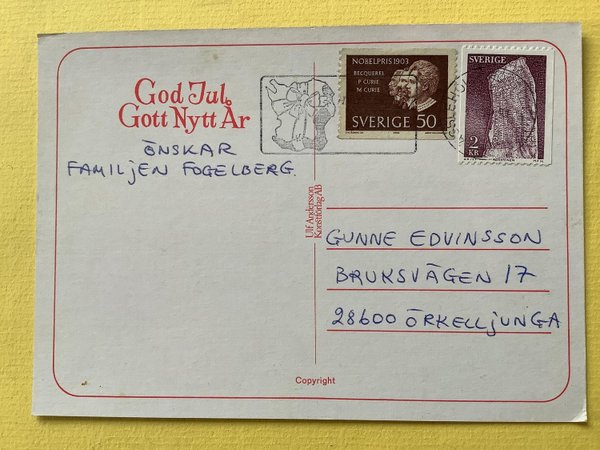 God Jul,
Gott Nytt År
ÖNSKAR
FAMILJEN FOGELBERG.
NOBELPRIS 1903
BECQUEREL
P CURIE
M CURIE
SVERIGE 50
SVERIGE
2
KR
Ulf Andersson
Konstförlag AB
GUNNE EDVINSSON
BRUKSVÄGEN 17
28600 ÖRKELLJUNGA
Copyright